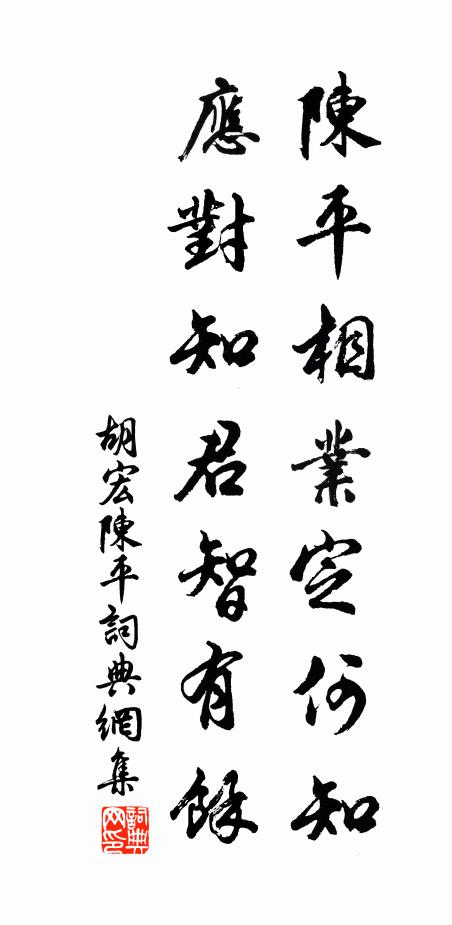 陳平相業定何知
應對知君智有餘
胡宏陳平詞典網集
詞典网印